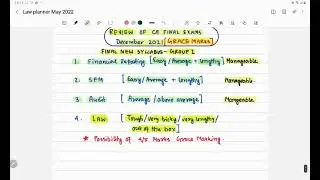 Law planner May 2022
REVIEW OF CA FINAL EXAMS
December 2021 [GRACE MARKS]
FINAL NEW SYLLABUS - GROUP I
1. Financial Reporting [Easy/Average + lengthy] Manageable
2. SFM [Easy/Average + lengthy]
3. Audit [Average/above average] Manageable
4. LAW [Tough/very tricky/very lengthy/
out of the box]
* Possibility of 4/5 Marks Grace Marking.